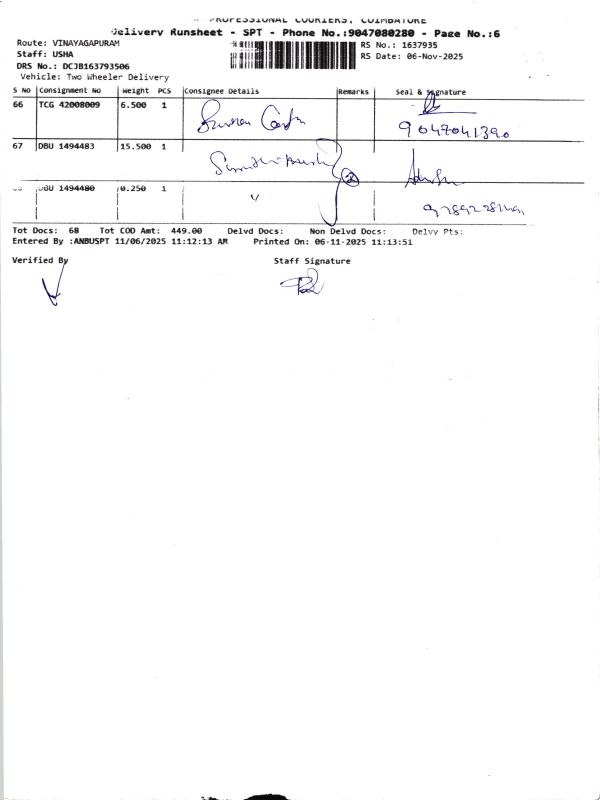 PROFESSIONAL COURIERS, COIMBATORE
Delivery Runsheet - SPT - Phone No.:9047080280 - Page No.:6
Route: VINAYAGAPURAM
Staff: USHA
DRS No.: DCJB163793506
Vehicle: Two Wheeler Delivery
RS No.: 1637935
RS Date: 06-Nov-2025
S No Consignment No Weight PCS Consignee Details Remarks Seal & Signature
66 TCG 42008009 6.500 1
9047041390
67 DBU 1494483 15.500 1
DBU 1494480 0.250 1 "
Tot Docs: 68 Tot COD Amt: 449.00 Delvd Docs: Non Delvd Docs: Delvy Pts:
Entered By :ANBUSPT 11/06/2025 11:12:13 AM Printed On: 06-11-2025 11:13:51
Verified By Staff Signature